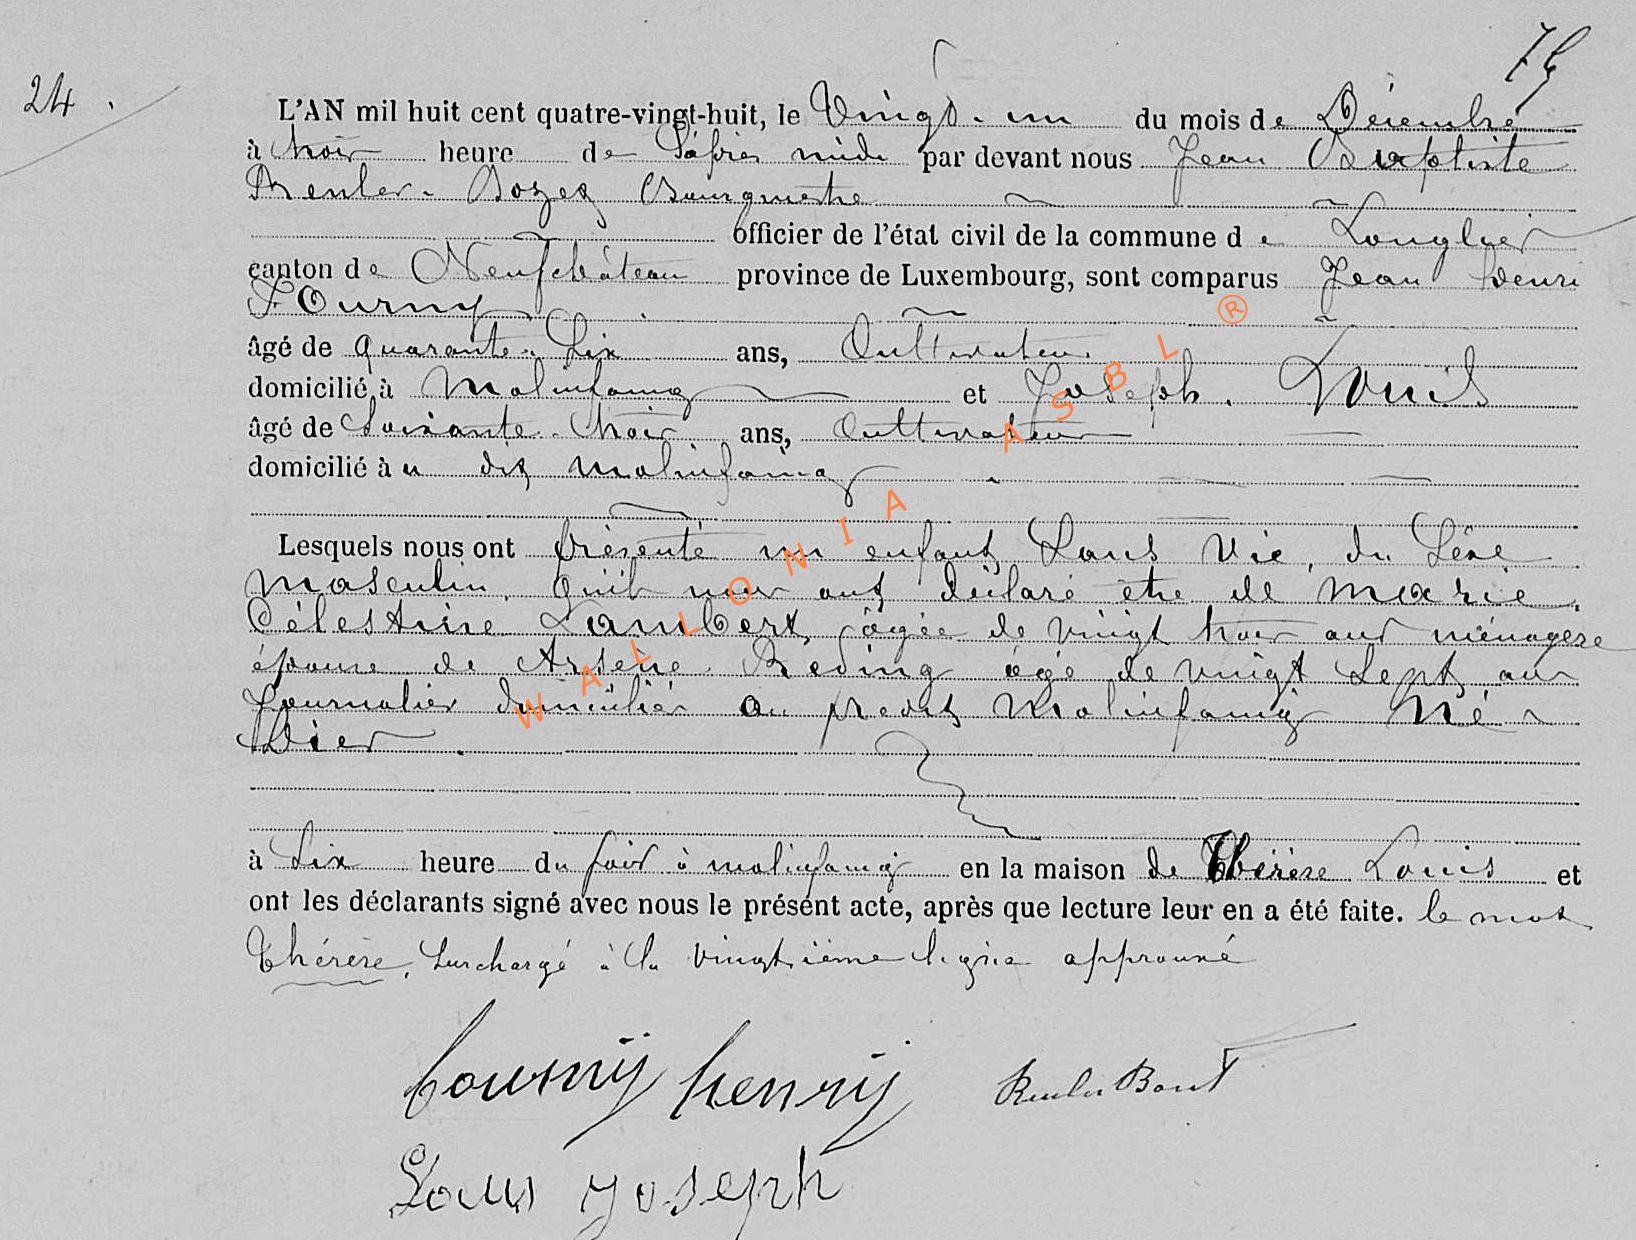 24.
L'AN mil huit cent quatre-vingt-huit, le Vingt-un du mois de Décembre
à trois heure de l'après midi par devant nous Jean Baptiste
Renler-Bozez Bourgmestre
officier de l'état civil de la commune de Longlier
canton de Neufchâteau province de Luxembourg, sont comparus Jean henri
Tourny
âgé de quarante-six ans, Cultivateur
domicilié à Molinfaing et Joseph Louis
âgé de Soixante-trois ans, Cultivateur
domicilié à u dit Molinfaing
Lesquels nous ont présenté un enfant Sans Vie, du Sexe
Masculin, qu'ils nous ont déclaré être de Marie
Célestine Lambert, âgée de vingt trois ans ménagère
épouse de Arsène Reding âgé de vingt Sept ans
Journalier domiciliés au predit Molinfaing Né
hier.
à Six heure du soir à molinfaing en la maison de Thérèse Louis et
ont les déclarants signé avec nous le présent acte, après que lecture leur en a été faite. le mot
Thérèse, Surchargé à la vingtième ligne approuvé
tournÿ henrÿ
Louis Joseph
WALLONIA ASBL ®